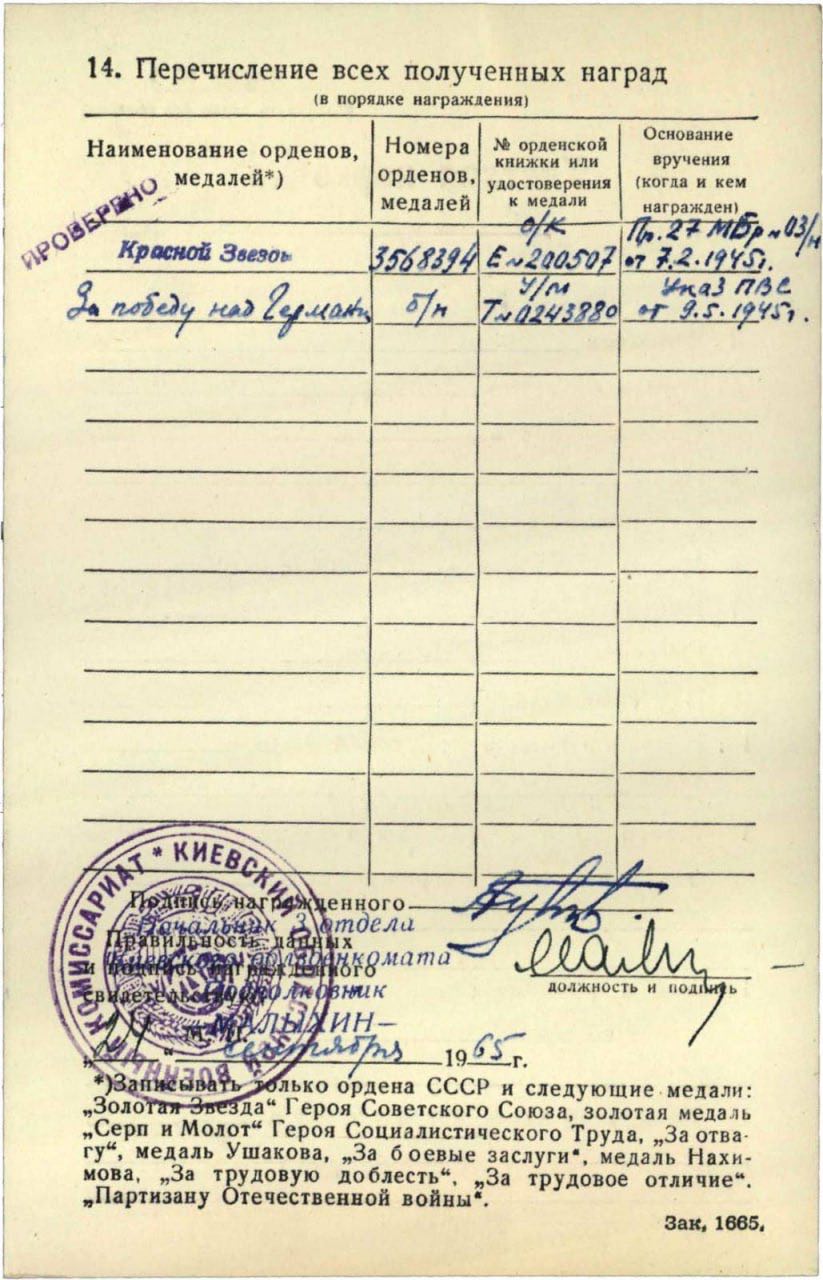 14. Перечисление всех полученных наград
(в порядке награждения)
Наименование орденов, медалей*)
Номера орденов, медалей
№ орденской книжки или удостоверения к медали
Основание вручения (когда и кем награжден)
ПРОВЕРЕНО
Красной Звезды 3568394 О/К Е № 200507 Пр. 27 МБр № 03/н от 7.2.1945г.
За победу над Германи б/н У/м Т № 0243880 Указ ПВС от 9.5.1945г.
Подпись награжденного
Начальник 3 отдела
Правильность данных
Киевского облвоенкомата
и подпись награжденного
Подполковник
свидетельствую
должность и подпись
МАЛЫХИН–
М. П.
„24“ сентября 1965 г.
ВОЕННЫЙ КОМИССАРИАТ * КИЕВСКИЙ
*)Записывать только ордена СССР и следующие медали:
„Золотая Звезда“ Героя Советского Союза, золотая медаль
„Серп и Молот“ Героя Социалистического Труда, „За отва-
гу“, медаль Ушакова, „За боевые заслуги“, медаль Нахи-
мова, „За трудовую доблесть“, „За трудовое отличие“.
„Партизану Отечественной войны“.
Зак. 1665.